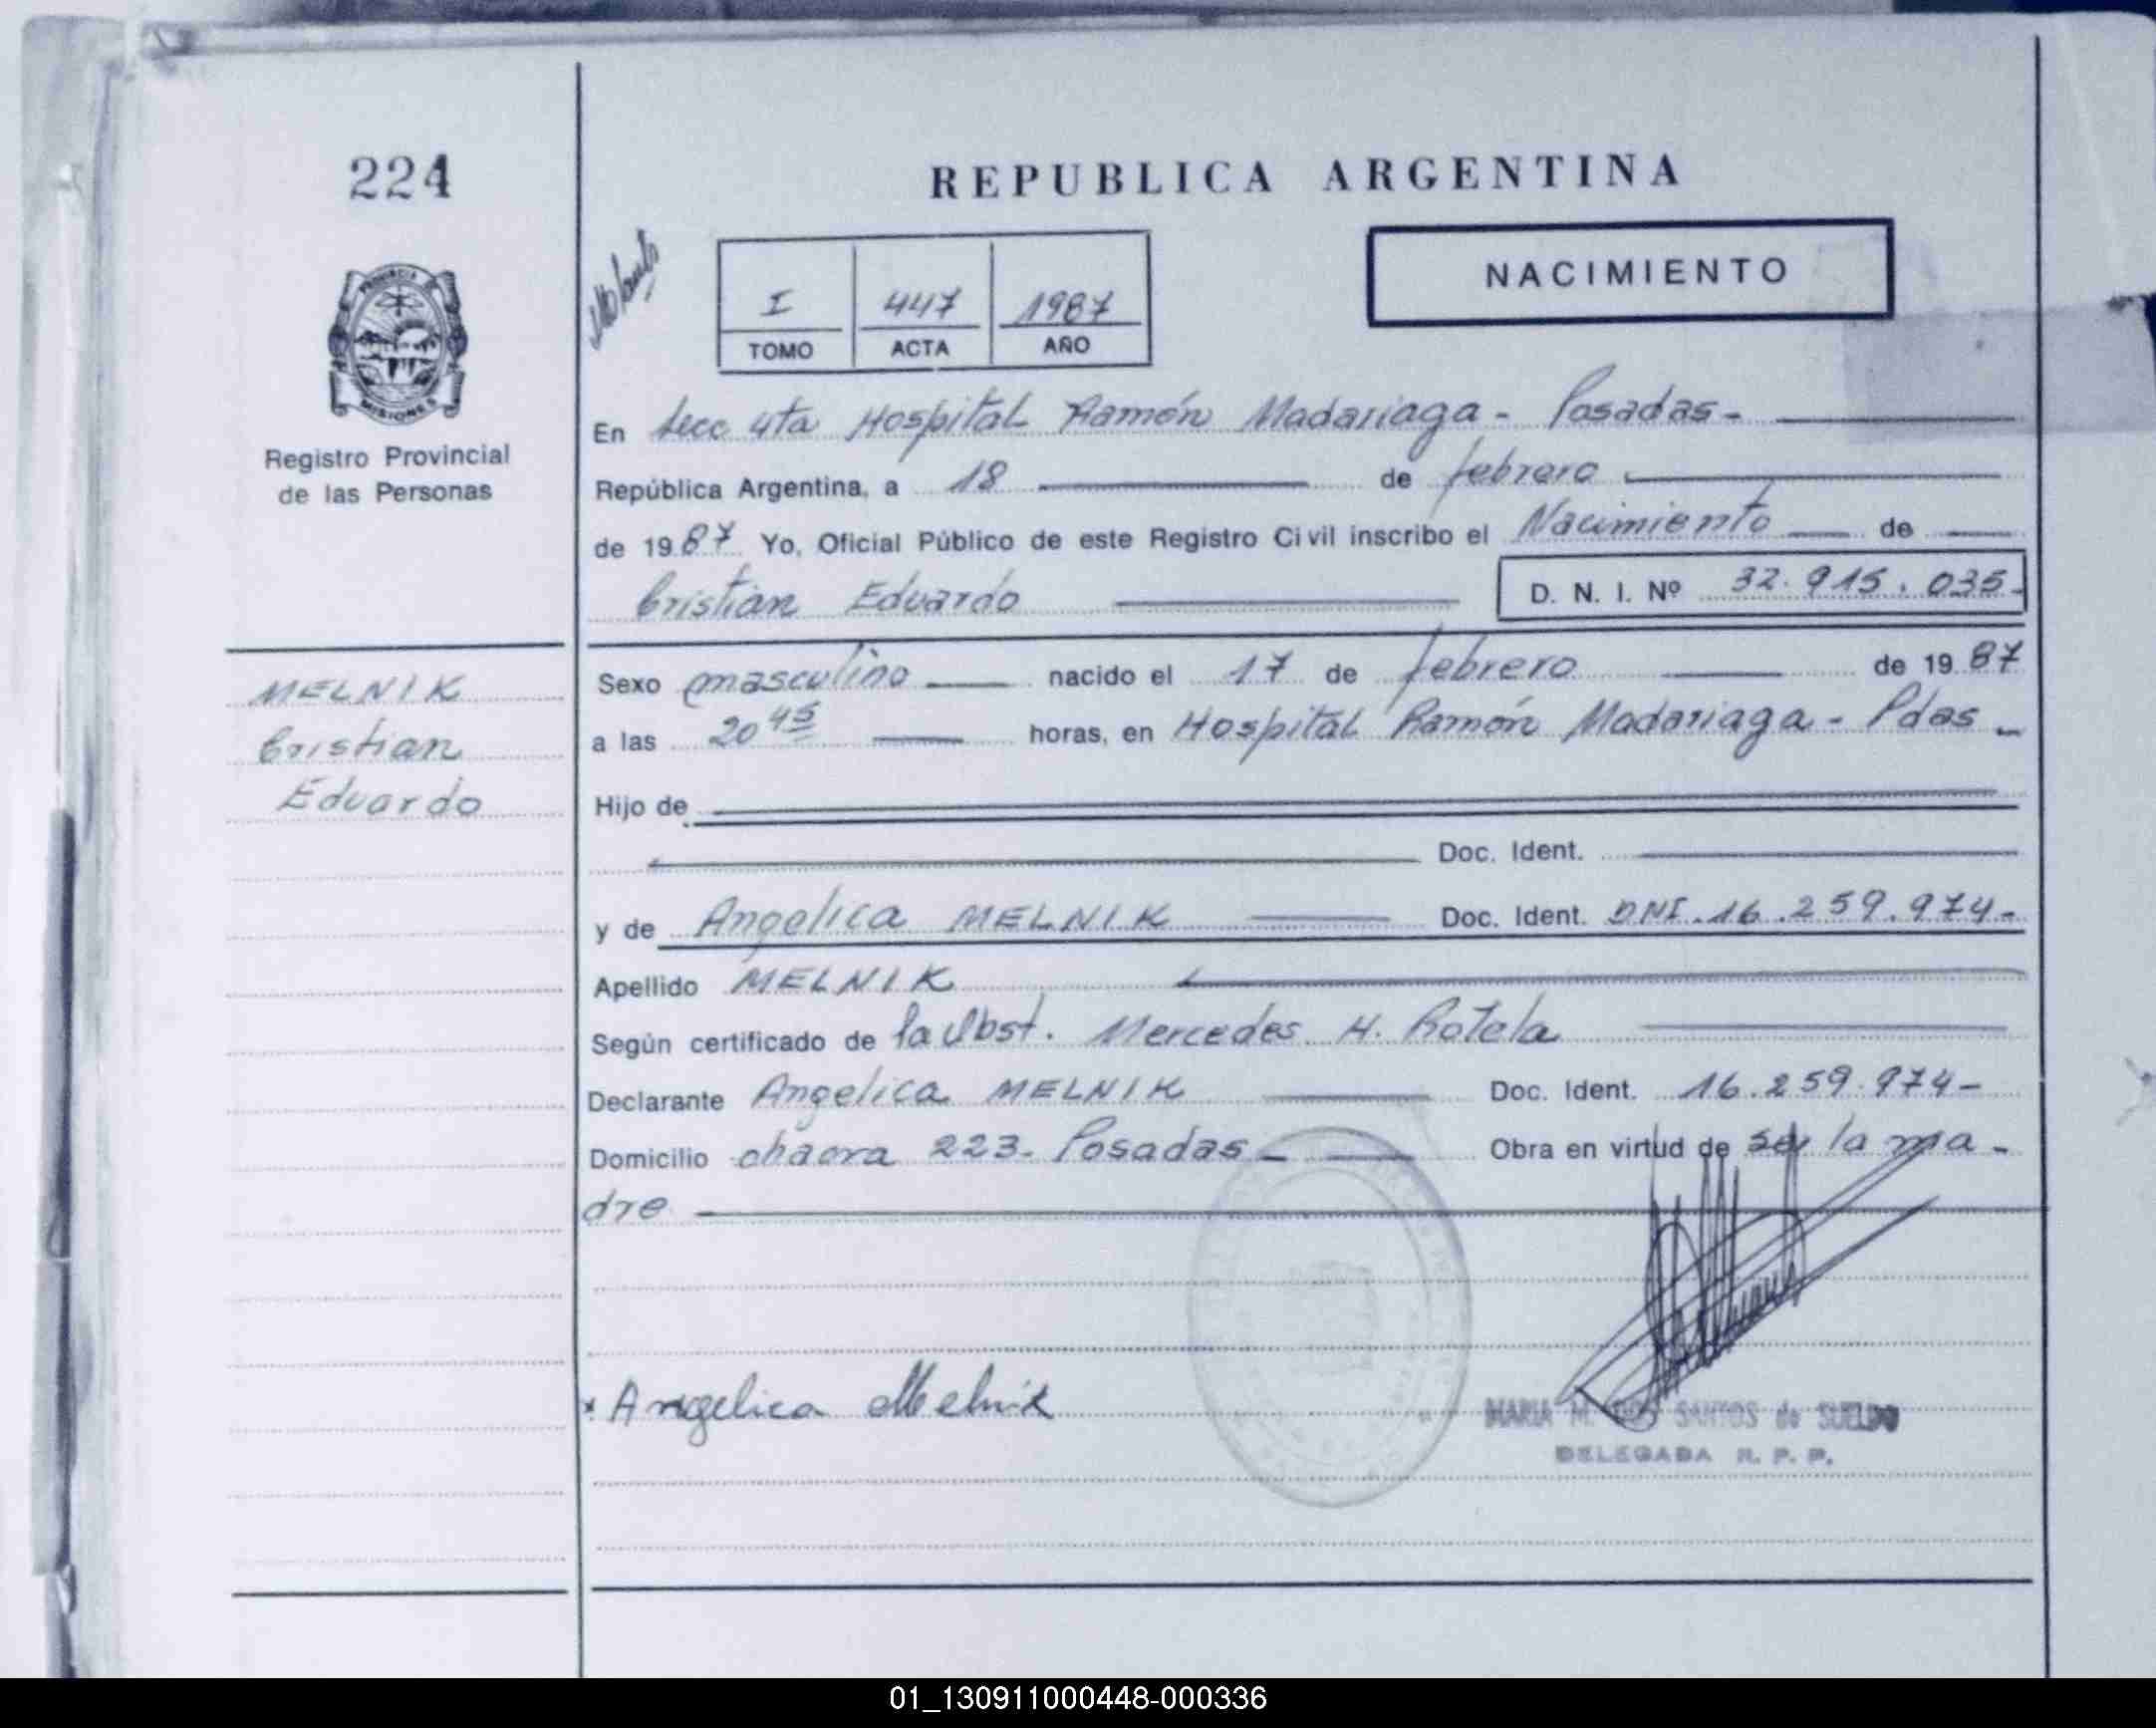 224
REPUBLICA ARGENTINA
PROVINCIA
MISIONES
Registro Provincial
de las Personas
I 447 1987
TOMO ACTA AÑO
NACIMIENTO
En Secc 4ta Hospital Ramón Madariaga - Posadas -
República Argentina, a 18 de febrero
de 1987 Yo, Oficial Público de este Registro Civil inscribo el Nacimiento de
Cristian Eduardo D. N. I. Nº 32.915.035-
MELNIK
Cristian
Eduardo
Sexo masculino nacido el 17 de febrero de 1987
a las 20 45 horas, en Hospital Ramón Madariaga - Pdas -
Hijo de
Doc. Ident.
y de Angelica MELNIK Doc. Ident. DNI. 16.259.974-
Apellido MELNIK
Según certificado de la Obst. Mercedes H. Rotela
Declarante Angelica MELNIK Doc. Ident. 16.259.974-
Domicilio chacra 223- Posadas - Obra en virtud de ser la ma-
dre
Angelica Melnik
MARIA M. DOS SANTOS de SUELDO
DELEGADA R. P. P.
01_130911000448-000336